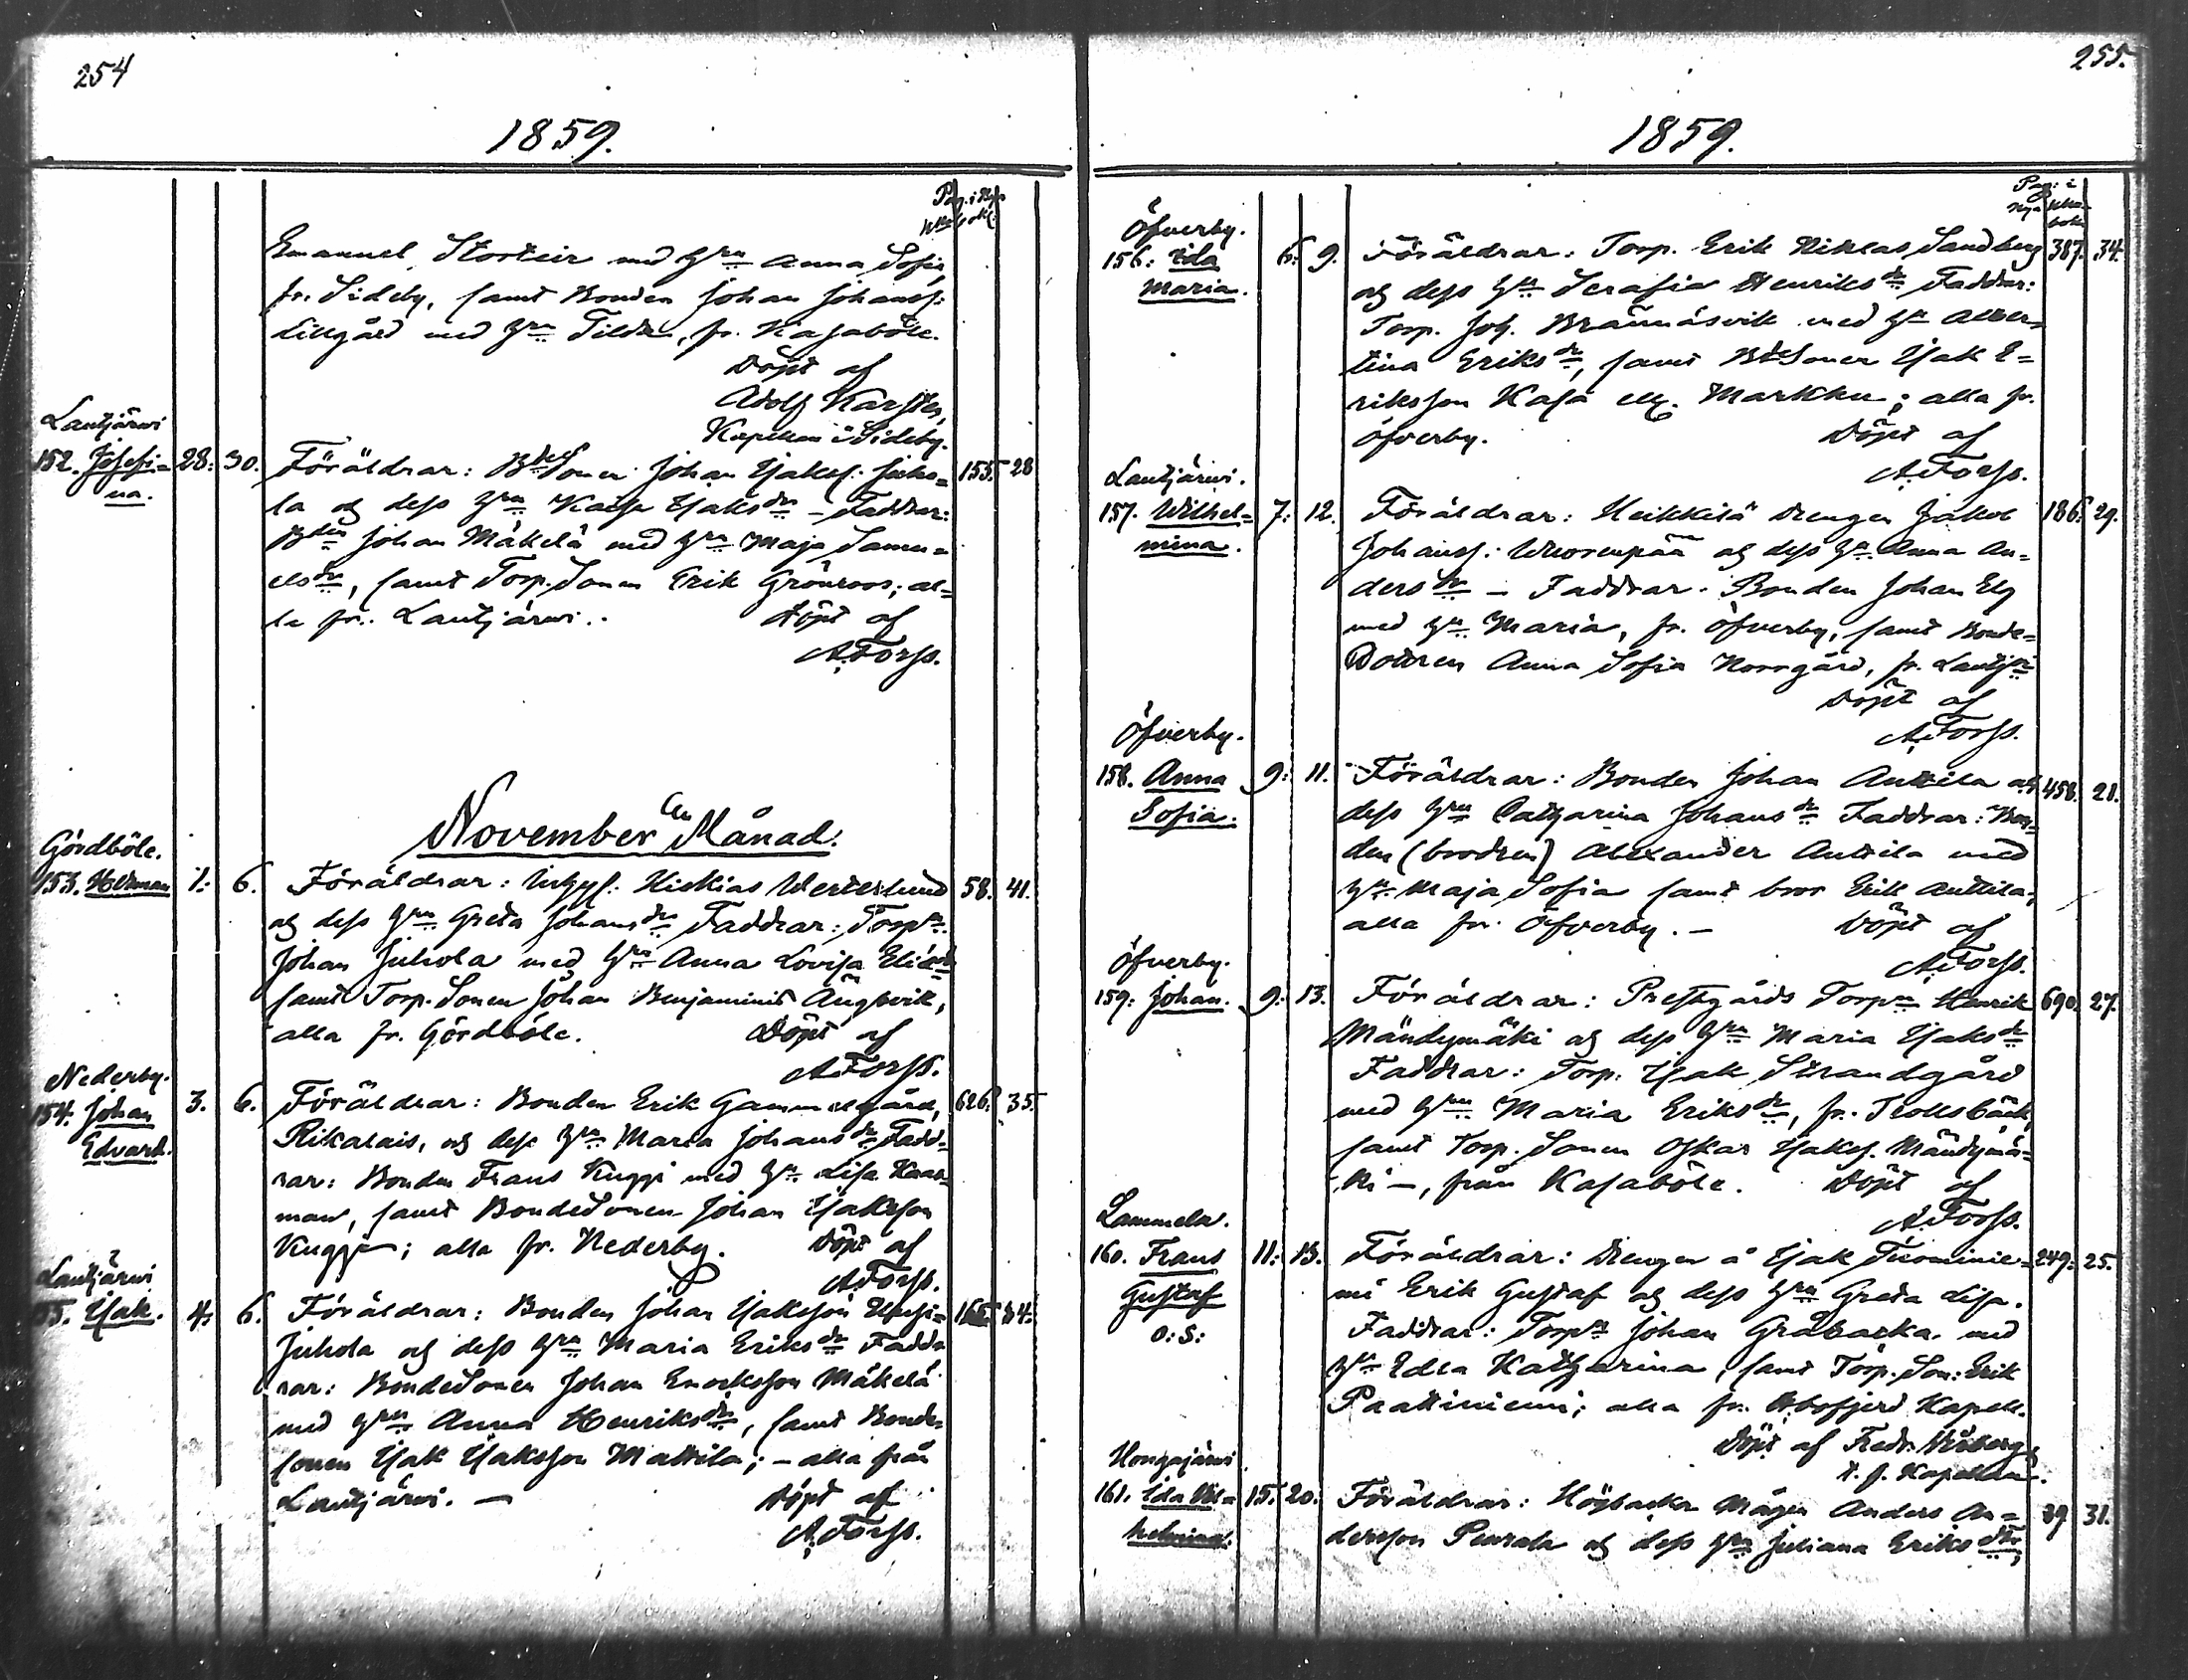 254
1859.
Pag. i Nya
Emanuel Storteir med Hru Anna Sofia,
fr. Sideby, samt Bonden Johan Johanss:
Lillgård med Hru Tilda, fr. Kasaböle.
Döpt af
Adolf Karsten,
Kapellan i Sideby.
Lautjärwi
152. Josefi= 28: 30. Föräldrar: BdeSonen Johan Isakss. Juho= 155. 28
na. la och dess Hru Kaisa Isaksdr – Faddrar:
Bden Johan Mäkelä med Hru Maja Samu=
elsdr, samt Torp. Sonen Erik Grönroos; al=
la fr. Lautjärwi. Döpt af
A. Forss.
November Månad.
Gördböle.
153. Herman 1: 6. Föräldrar: Inhys: Hiskias Westerlund 58. 41.
och dess Hru Greta Johansdr Faddrar: Torpn
Johan Juhola med Hru Anna Lovisa
samt Torp. Sonen Johan Benjamins Ängsvik,
alla fr. Gördböle. Döpt af
A. Forss.
Nederby.
154. Johan 3. 6. Föräldrar: Bonden Erik Gammelgård, 626. 35.
Edvard. Rikalais, och dess Hru Maria Johansdr Fadd=
rar: Bonden Frans Kuggi med Hru Lisa
man, samt BondeSonen Johan Isaksson
Kuggi; alla fr. Nederby. Döpt af
A. Forss.
Lautjärwi
155. Isak. 4: 6. Föräldrar: Bonden Johan Isaksson Uusi= 34.
Juhola och dess Hru Maria Eriksdr Fadd=
rar: BondeSonen Johan Enoksson Mäkelä
med Hru Anna Henriksdr, samt Bonde=
sonen Isak Isaksson Mattila; – alla från
Lautjärwi. – Döpt af
A. Forss.
255.
1859.
Pag: i
nya
bok
Öfverby.
156: Ida 6: 9. Föräldrar: Torp. Erik Niklas Sandberg 387. 34.
Maria. och dess Hru Serafia Henriksdr Faddrar:
Torp. Joh. Brännäsvik med Hru Alber=
tina Eriksdr, samt BdeSonen Isak E=
riksson Kasa ell. Markku; alla fr.
Öfverby. Döpt af
A. Forss.
Lautjärwi.
157. Wilhel= 7: 12. Föräldrar: Heikkilä drengen Jakob 186. 29.
mina. Johanss: Wuorenpää och dess Hru Anna An=
dersdr – Faddrar: Bonden Johan Elg
med Hru Maria, fr. Öfverby, samt Bonde=
Dottren Anna Sofia Norrgård, fr. Lautjwi
Döpt af
A. Forss.
Öfverby.
158. Anna 9: 11. Föräldrar: Bonden Johan Anttila och 458. 28.
Sofia. dess Hru Catharina Johansdr Faddrar: Bon=
den (brodren) Alexander Anttila med
Hru Maja Sofia samt bror Erik Anttila;
alla fr. Öfverby. – Döpt af
A. Forss.
Öfverby.
159: Johan. 9: 13. Föräldrar: Prestgårds Torpn Henrik 690. 27.
Mändymäki och dess Hru Maria Isaksdr
Faddrar: Torp. Isak Strandgård
med Hru Maria Eriksdr, fr. Trollsbäck,
samt Torp. Sonen Oskar Isakss. Mändymä=
ki –, från Kasaböle. Döpt af
A. Forss.
Lammela.
160. Frans 11: 13. Föräldrar: Drengen å Isak Tuominie= 249. 25.
Gustaf mi Erik Gustaf och dess Hru Greta Lisa.
o: s: Faddrar: Torpn Johan Gråbacka med
Hru Edla Katharina, samt Torp. Son: Erik
Paattiniemi; alla fr. Åbofjerd Kapell.
Döpt af Fredr.
t. f. Kapellan.
Hongajärwi
161. Ida Wil= 15. 20. Föräldrar: Högbacka Mågen Anders An= 39 31.
helmina. dersson Peurala och dess Hru Juliana Eriksdtr,